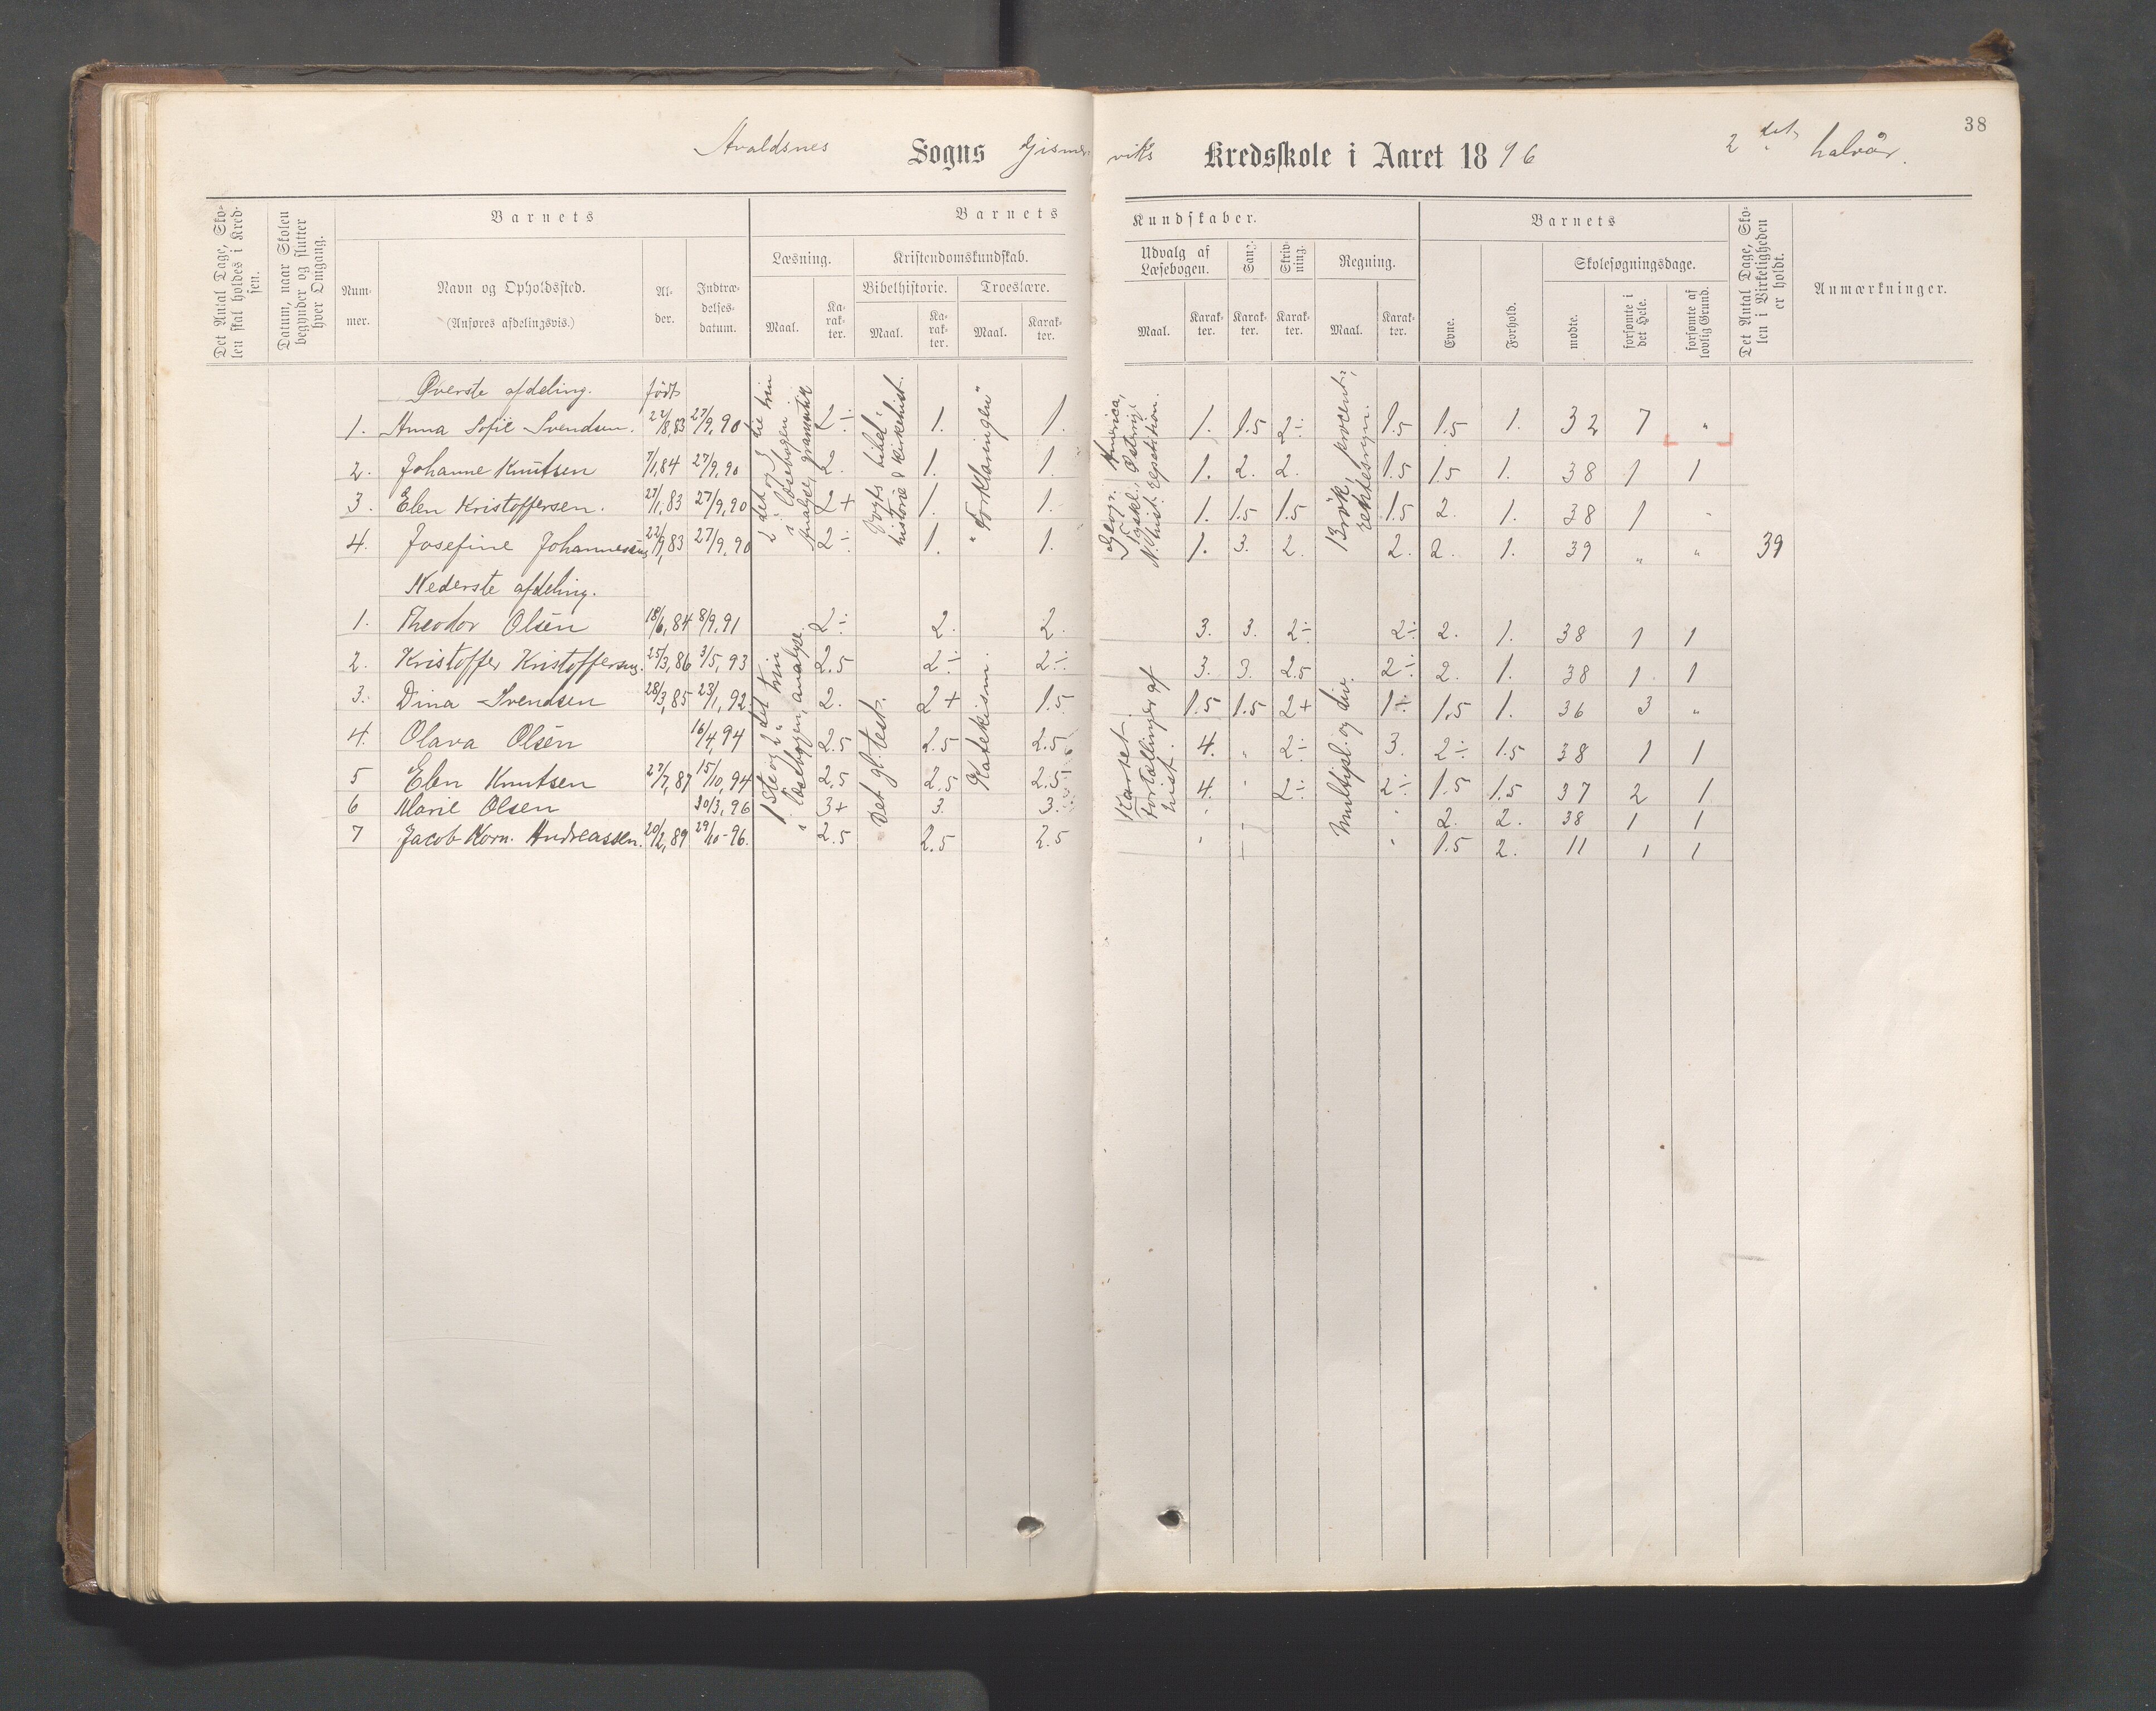 38
Avaldsnes Sogns Gismer viks Kredsskole i Aaret 1896 2det halvår.
Det Antal Dage, Skolen skal holdes i Kredsen.
Datum, naar Skolen begynder og slutter hver Omgang.
Barnets
Barnets Kundskaber.
Barnets
Det Antal Dage, Skolen i Virkeligheden er holdt.
Anmærkninger.
Nummer.
Navn og Opholdssted.
(Anføres afdelingsvis.)
Alder.
Indtrædelsesdatum.
Læsning.
Kristendomskundskab.
Bibelhistorie.
Troeslære.
Udvalg af Læsebogen.
Sang.
Skrivning.
Regning.
Evne.
Forhold.
Skolesøgningsdage.
Maal. Karakter. Maal. Karakter. Maal. Karakter. Maal. Karakter. Karakter. Karakter. Maal. Karakter.
mødte. forsømte i det Hele. forsømte af lovlig Grund.
Øverste afdeling. født
1. Anna Sofie Svendsen. 22/8,83 27/9,90 2÷ 1. 1. 1. 1.5 2÷ 1.5 1.5 1. 32 7 "
2. Johanne Knutsen 7/1,84 27/9,90 2. 1. 1. 1. 2. 2. 1.5 1.5 1. 38 1 1
3. Elen Kristoffersen. 27/1,83 27/9,90 2+ 1. 1. 1. 1.5 1.5 1.5 2. 1. 38 1 "
4. Josefine Johannessen 22/9,83 27/9,90 2÷ 1. 1. 1. 3. 2. 2. 2. 1. 39 " " 39
2det og 3die trin i læsebogen. Analyse, grammatik
Vogts bibelhistorie & kirkehist.
"Forklaringen"
Geogr. America, Fyskl., Østerrige N. hist. repetition.
Brøk, procent, rentesregn.
Nederste afdeling.
1. Theodor Olsen 18/6,84 8/9,91 2÷ 2. 2. 3. 3. 2÷ 2÷ 2. 1. 38 1 1
2. Kristoffer Kristoffersen. 25/3,86 3/5,93 2.5 2÷ 2÷ 3. 3. 2.5 2÷ 2. 1. 38 1 1
3. Dina Svendsen 28/3,85 23/1,92 2. 2+ 1.5 1.5 1.5 2+ 1÷ 1.5 1. 36 3 "
4. Olava Olsen 16/4,94 2.5 2.5 2.5 4. " 2÷ 3. 2÷ 1.5 38 1 1
5 Elen Knutsen 27/7,87 15/10,94 2.5 2.5 2.5 4. " 2÷ 2÷ 1.5 1.5 37 2 1
6 Marie Olsen 30/3,96 3+ 3. 3. " - " 2. 2. 38 1 1
7 Jacob Korn. Andreassen. 20/2,89 29/10-96. 2.5 2.5 2.5 " - " 1.5 2. 11 1 1
1ste og 2det trin i læsebogen, analyse.
Det gl. test.
Katekism.
Kartet. Fortællinger af hist.
Multipl. og div.